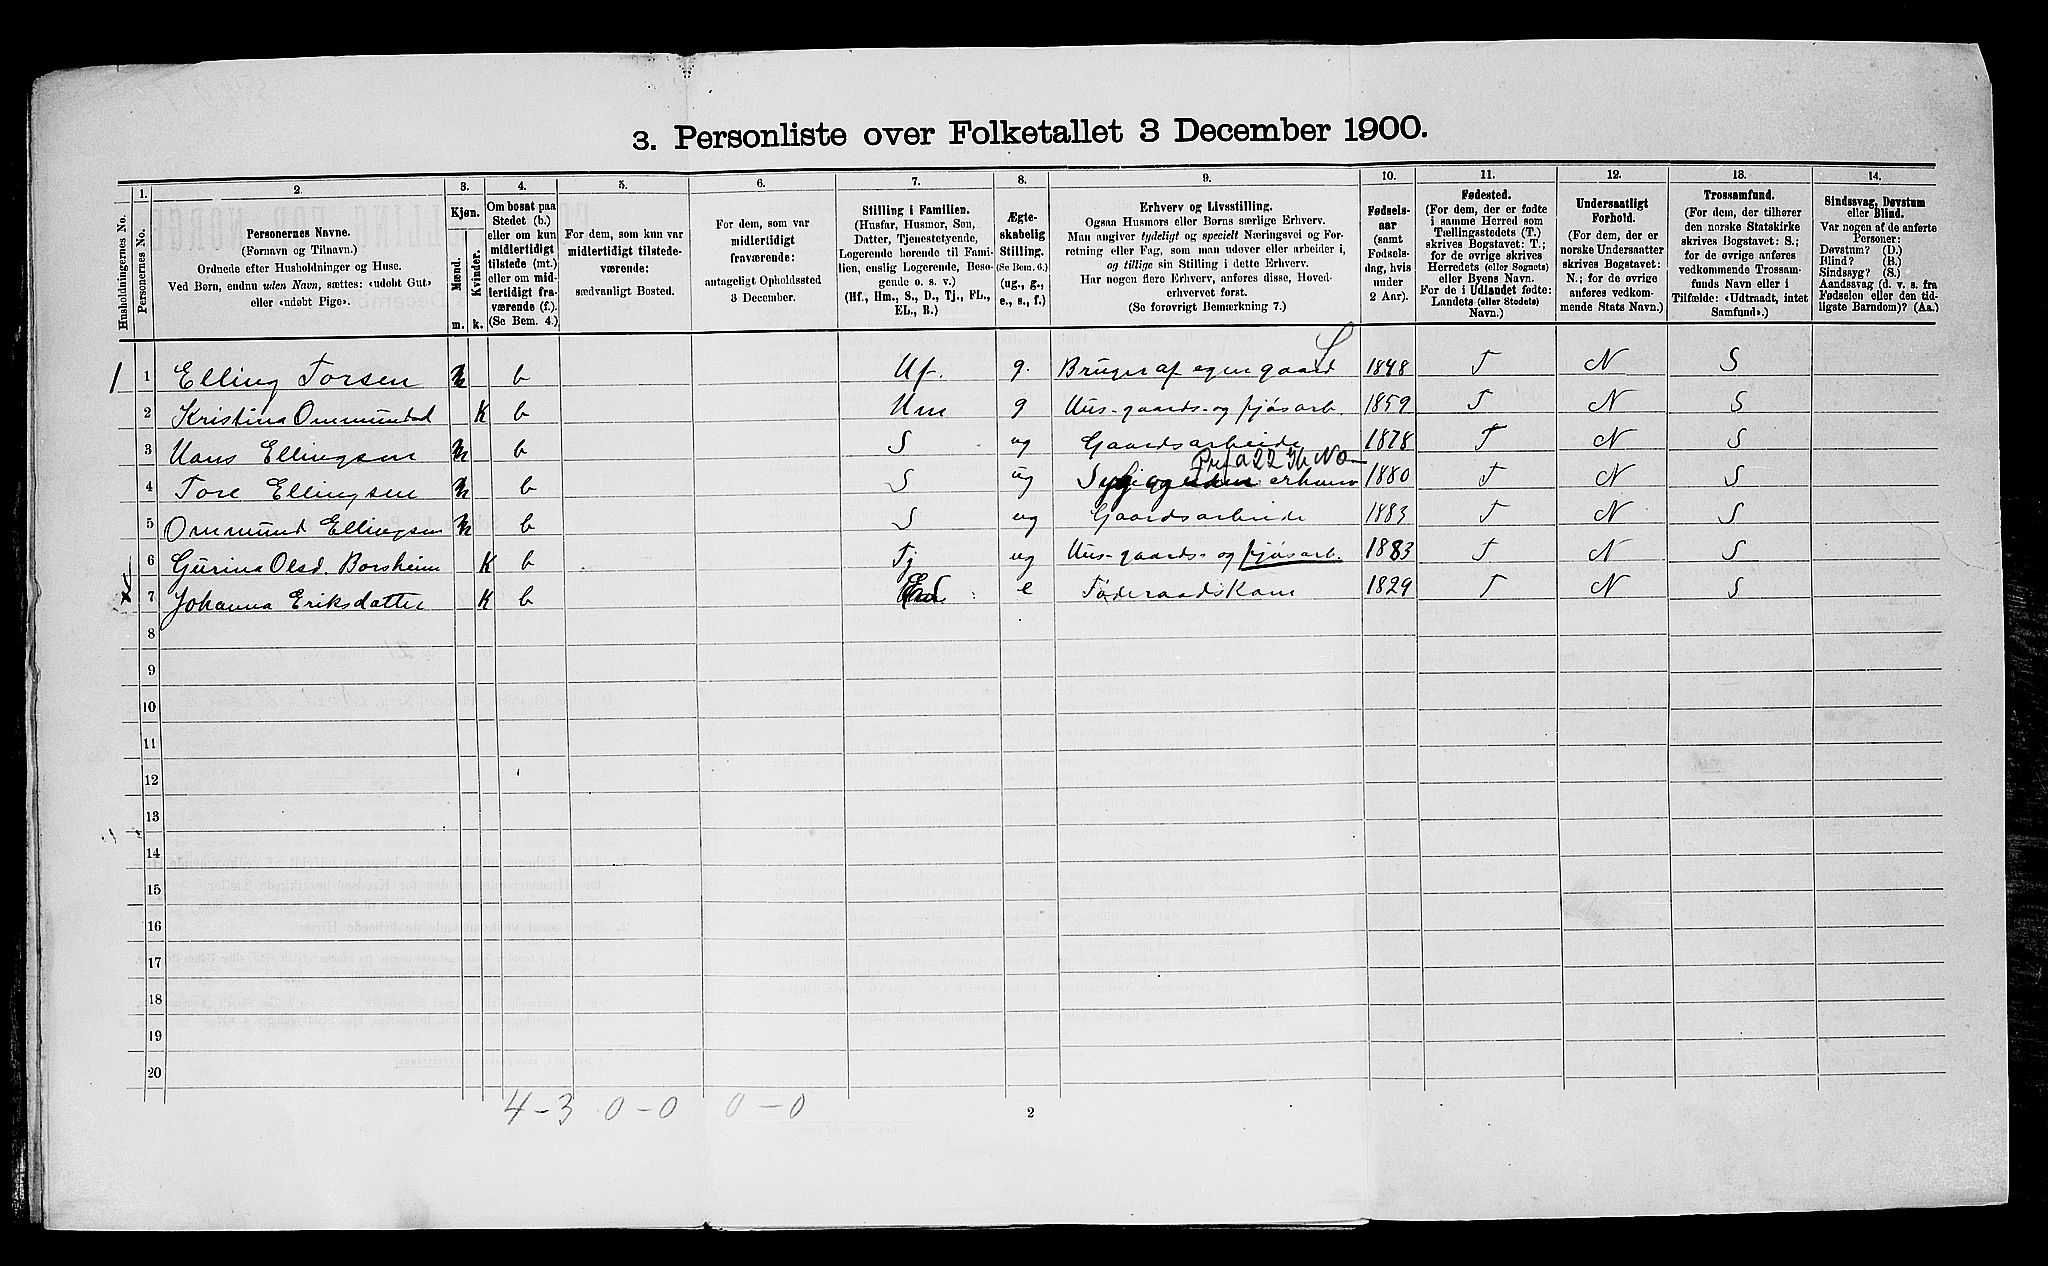 3. Personliste over Folketallet 3 December 1900.
1. 2. 3. 4. 5. 6. 7. 8. 9. 10. 11. 12. 13. 14.
Husholdningernes No.
Personernes No.
Personernes Navne.
(Fornavn og Tilnavn.)
Ordnede efter Husholdninger og Huse.
Ved Børn, endnu uden Navn, sættes: «udøbt Gut»
eller «udøbt Pige».
Kjøn.
Mænd.
Kvinder.
m. k.
Om bosat paa
Stedet (b.)
eller om kun
midlertidigt
tilstede (mt.)
eller om mid-
lertidigt fra-
værende (f.).
(Se Bem. 4.)
For dem, som kun var
midlertidigt tilstede-
værende:
sædvanligt Bosted.
For dem, som var
midlertidigt
fraværende:
antageligt Opholdssted
3 December.
Stilling i Familien.
(Husfar, Husmor, Søn,
Datter, Tjenestetyende,
Logerende hørende til Fami-
lien, enslig Logerende, Besø-
gende o. s. v.)
(Hf., Hm., S., D., Tj., FL.,
EL., B.)
Ægte-
skabelig
Stilling.
(Se Bem. 6.)
(ug., g.,
e., s., f.)
Erhverv og Livsstilling.
Ogsaa Husmors eller Børns særlige Erhverv.
Man angiver tydeligt og specielt Næringsvei og For-
retning eller Fag, som man udøver eller arbeider i,
og tillige sin Stilling i dette Erhverv.
Har nogen flere Erhverv, anføres disse, Hoved-
erhvervet først.
(Se forøvrigt Bemærkning 7.)
Fødsels-
aar
(samt
Fødsels-
dag, hvis
under
2 Aar).
Fødested.
(For dem, der er fødte
i samme Herred som
Tællingsstedets (T.)
skrives Bogstavet: T.;
for de øvrige skrives
Herredets (eller Sognets)
eller Byens Navn.
For de i Udlandet fødte:
Landets (eller Stedets)
Navn.)
Undersaatligt
Forhold.
(For dem, der er
norske Undersaatter
skrives Bogstavet:
N.; for de øvrige
anføres vedkom-
mende Stats Navn.)
Trossamfund.
(For dem, der tilhører
den norske Statskirke
skrives Bogstavet: S.;
for de øvrige anføres
vedkommende Trossam-
funds Navn eller i
Tilfælde: «Udtraadt, intet
Samfund».)
Sindssvag, Døvstum
eller Blind.
Var nogen af de anførte
Personer:
Døvstum? (D.)
Blind? (B.)
Sindssyg? (S.)
Aandssvag (d. v. s. fra
Fødselen eller den tid-
ligste Barndom)? (Aa.)
1 1 Elling Torsen m b Hf. g. Bruger af egen gaard S 1848 T N S
2 Kristina Ommundsd K b Hm g Hus- gaards- og fjøsarb. 1859 T N S
3 Hans Ellingsen m b S ug Gaardsarbeide 1878 T N S
4 Tore Ellingsen m b S ug 1880 T N S
5 Ommund Ellingsen m b S ug Gaardsarbeide 1883 T N S
6 Gurina Olsd. Borsheim K b Tj ug Hus- gaards- og fjøsarb. 1883 T N S
x 7 Johanna Eriksdatter K b e Føderaadskone 1829 T N S
8
9
10
11
12
13
14
15
16
17
18
19
20
4 – 3 0 – 0 0 – 0
2